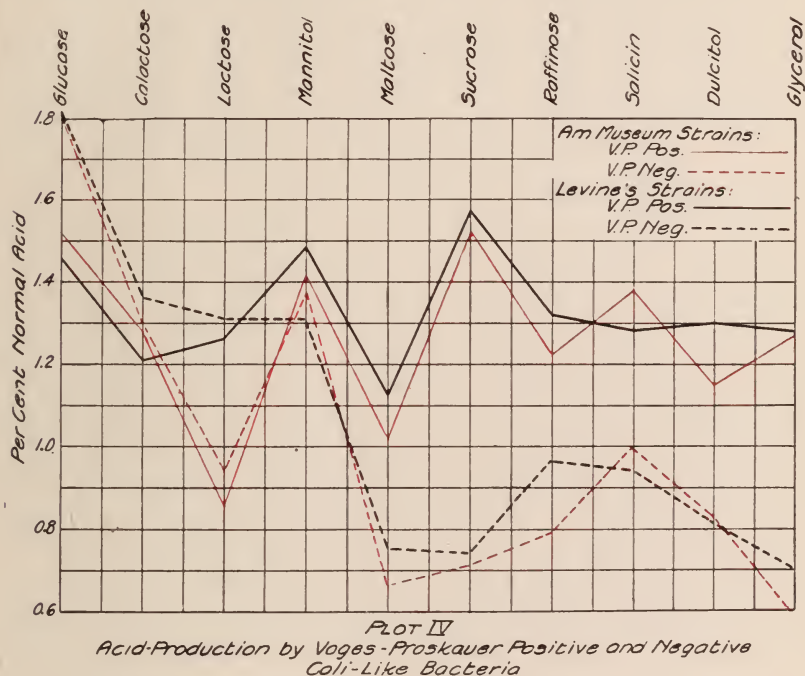 Glucose
Galactose
Lactose
Mannitol
Maltose
Sucrose
Raffinose
Salicin
Dulcitol
Glycerol
Per Cent Normal Acid
1.8
1.6
1.4
1.2
1.0
0.8
0.6
Am Museum Strains:
V.P. Pos.
V.P. Neg.
Levine's Strains:
V.P. Pos.
V.P. Neg.
PLOT IV
Acid-Production by Voges-Proskauer Positive and Negative
Coli-Like Bacteria